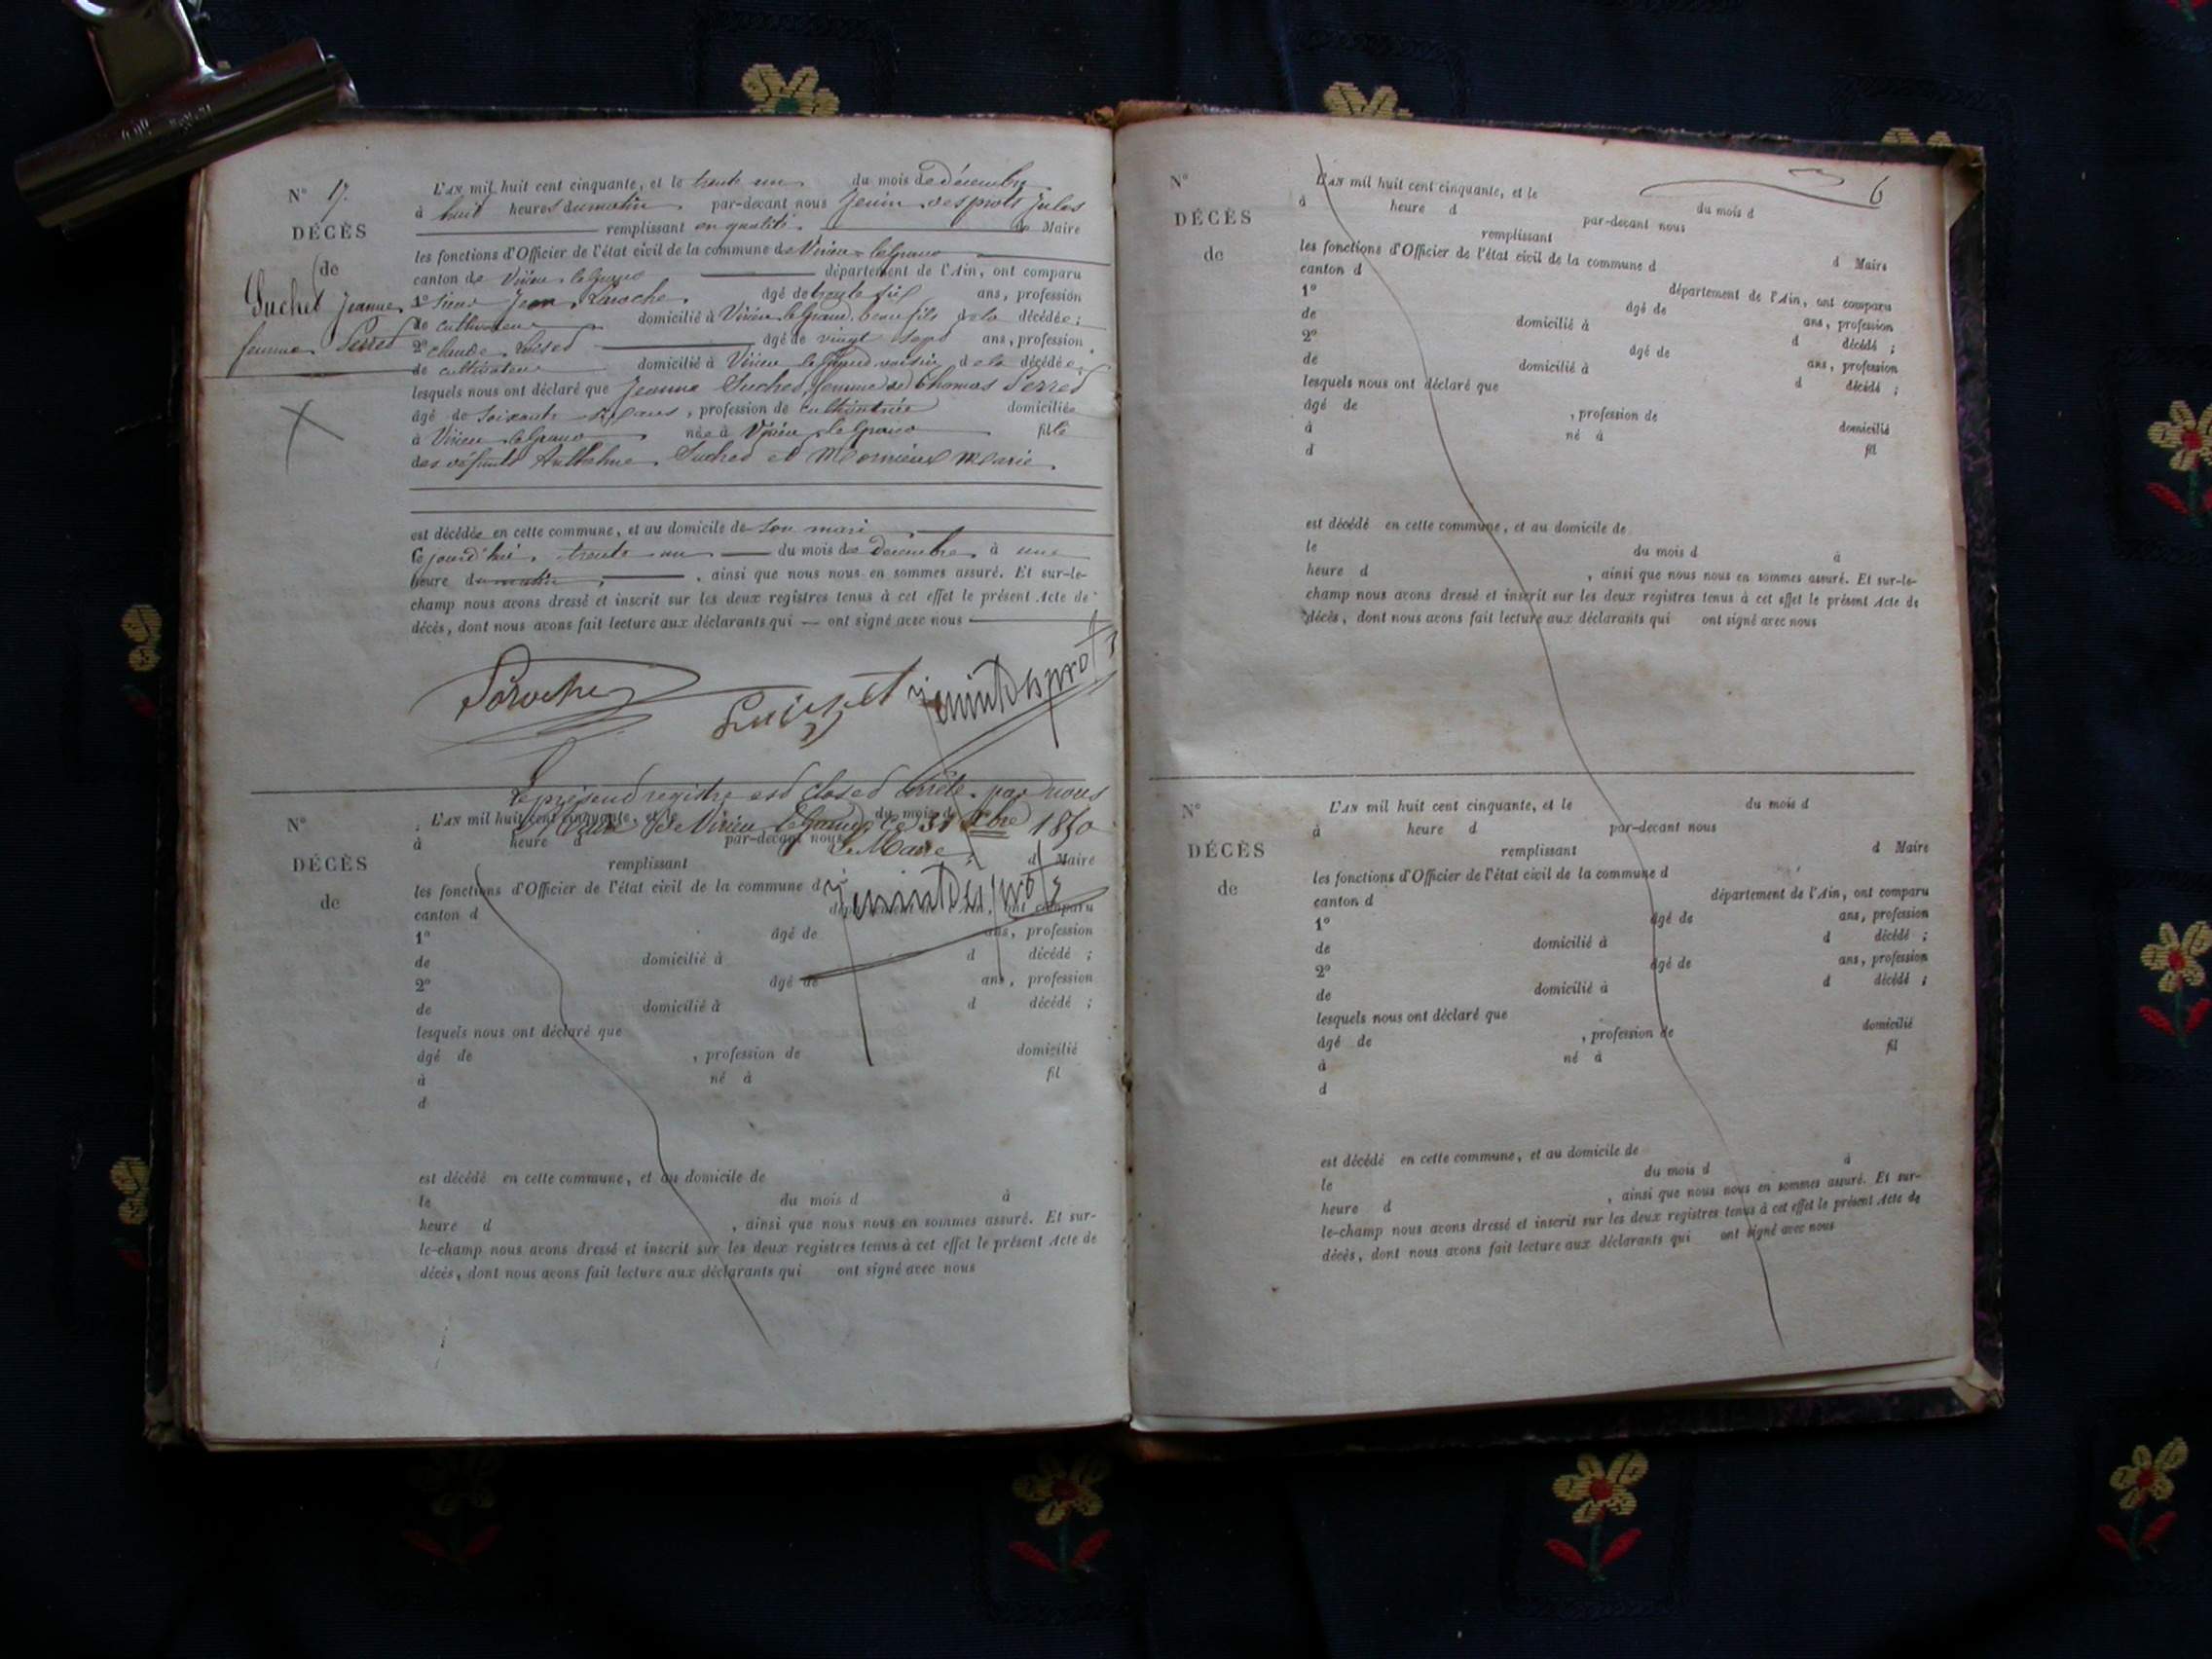 N° 17.
DÉCÈS
de
Suchet Jeanne
femme Serret
L'AN mil huit cent cinquante, et le trente un du mois de décembre
à huit heures du matin par-devant nous Jenin desprots jules
remplissant en qualité de Maire
les fonctions d'Officier de l'état civil de la commune de Virieu le grand
canton de Virieu le grand département de l'Ain, ont comparu
1° sieur Jean Laroche âgé de trente six ans, profession
de cultivateur domicilié à Virieu le grand, beau fils de la décédée ;
2° claude âgé de vingt sept ans, profession
de cultivateur domicilié à Virieu le grand voisin de la décédée,
lesquels nous ont déclaré que Jeanne Suchet, femme de Thomas Serret
âgé de soixante ans, profession de cultivatrice domiciliée
à Virieu le grand née à Virieu le grand fille
des défunts Anthelme Suchet et Marie
est décédée en cette commune, et au domicile de son mari
Ce jourd'hui trente un du mois de décembre à une
heure du matin, ainsi que nous nous en sommes assuré. Et sur-le-
champ nous avons dressé et inscrit sur les deux registres tenus à cet effet le présent Acte de
décès, dont nous avons fait lecture aux déclarants qui — ont signé avec nous
Laroche
jenindesprots
Le présent registre est clos et arrêté par nous
Maire de Virieu le grand le 31 Xbre 1850
Le Maire
jenindesprots
N°
DÉCÈS
de
L'AN mil huit cent cinquante, et le du mois d
à heure d par-devant nous
remplissant d Maire
les fonctions d'Officier de l'état civil de la commune d
canton d département de l'Ain, ont comparu
1° âgé de ans, profession
de domicilié à d décédé ;
2° âgé de ans, profession
de domicilié à d décédé ;
lesquels nous ont déclaré que
âgé de , profession de domicilié
à né à fil
d
est décédé en cette commune, et au domicile de
le du mois d à
heure d , ainsi que nous nous en sommes assuré. Et sur-
le-champ nous avons dressé et inscrit sur les deux registres tenus à cet effet le présent Acte de
décès, dont nous avons fait lecture aux déclarants qui ont signé avec nous
6
N°
DÉCÈS
de
L'AN mil huit cent cinquante, et le du mois d
à heure d par-devant nous
remplissant d Maire
les fonctions d'Officier de l'état civil de la commune d
canton d département de l'Ain, ont comparu
1° âgé de ans, profession
de domicilié à d décédé ;
2° âgé de ans, profession
de domicilié à d décédé ;
lesquels nous ont déclaré que
âgé de , profession de domicilié
à né à fil
d
est décédé en cette commune, et au domicile de
le du mois d à
heure d , ainsi que nous nous en sommes assuré. Et sur-le-
champ nous avons dressé et inscrit sur les deux registres tenus à cet effet le présent Acte de
décès, dont nous avons fait lecture aux déclarants qui ont signé avec nous
N°
DÉCÈS
de
L'AN mil huit cent cinquante, et le du mois d
à heure d par-devant nous
remplissant d Maire
les fonctions d'Officier de l'état civil de la commune d
canton d département de l'Ain, ont comparu
1° âgé de ans, profession
de domicilié à d décédé ;
2° âgé de ans, profession
de domicilié à d décédé ;
lesquels nous ont déclaré que
âgé de , profession de domicilié
à né à fil
d
est décédé en cette commune, et au domicile de
le du mois d à
heure d , ainsi que nous nous en sommes assuré. Et sur-
le-champ nous avons dressé et inscrit sur les deux registres tenus à cet effet le présent Acte de
décès, dont nous avons fait lecture aux déclarants qui ont signé avec nous